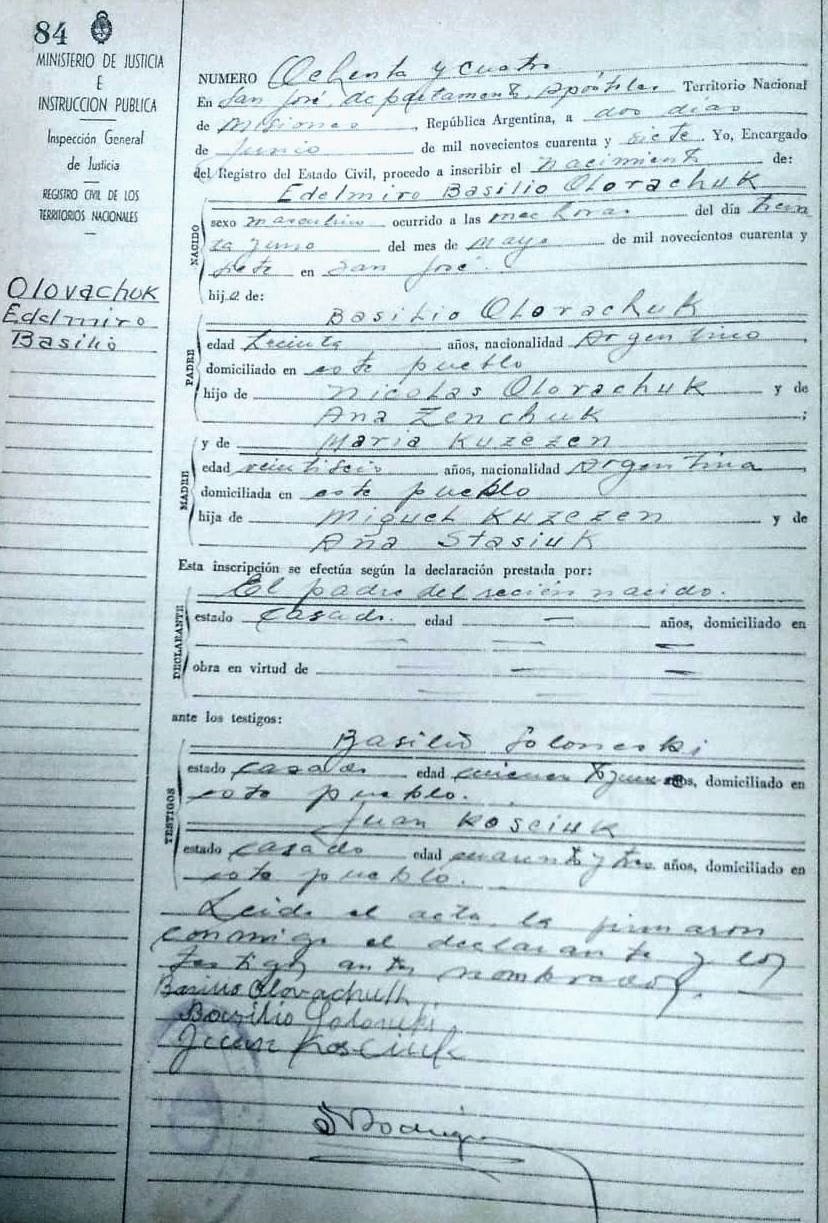 84
MINISTERIO DE JUSTICIA
E
INSTRUCCION PUBLICA
Inspección General
de Justicia
REGISTRO CIVIL DE LOS
TERRITORIOS NACIONALES
Olovachuk
Edelmiro
Basilio
NUMERO Ochenta y cuatro
En San José, departamento Apóstoles Territorio Nacional
de Misiones, República Argentina, a dos días
de Junio de mil novecientos cuarenta y siete Yo, Encargado
del Registro del Estado Civil, procedo a inscribir el nacimiento de:
Edelmiro Basilio Olovachuk
NACIDO
sexo masculino ocurrido a las horas del día trein
ta y uno del mes de Mayo de mil novecientos cuarenta y
siete en San José.
hijo de:
Basilio Olovachuk
PADRE
edad treinta años, nacionalidad Argentino
domiciliado en este pueblo
hijo de Nicolas Olovachuk y de
Ana Zenchuk ;
MADRE
y de Maria Kuzezen
edad veintiseis años, nacionalidad Argentina
domiciliada en este pueblo
hija de Miguel Kuzezen y de
Ana Stasiuk
Esta inscripción se efectúa según la declaración prestada por:
El padre del recién nacido.
DECLARANTE
estado casado. edad — años, domiciliado en
—
obra en virtud de —
ante los testigos:
Basilio
TESTIGOS
estado casado edad años, domiciliado en
este pueblo.
Juan Kosciuk
estado casado edad cuarenta y tres años, domiciliado en
este pueblo.
Leida el acta, la firmaron
conmigo el declarante y los
testigos antes nombrados.
Basilio Olovachuk
Basilio
Juan Kosciuk